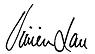 Vivien Lau